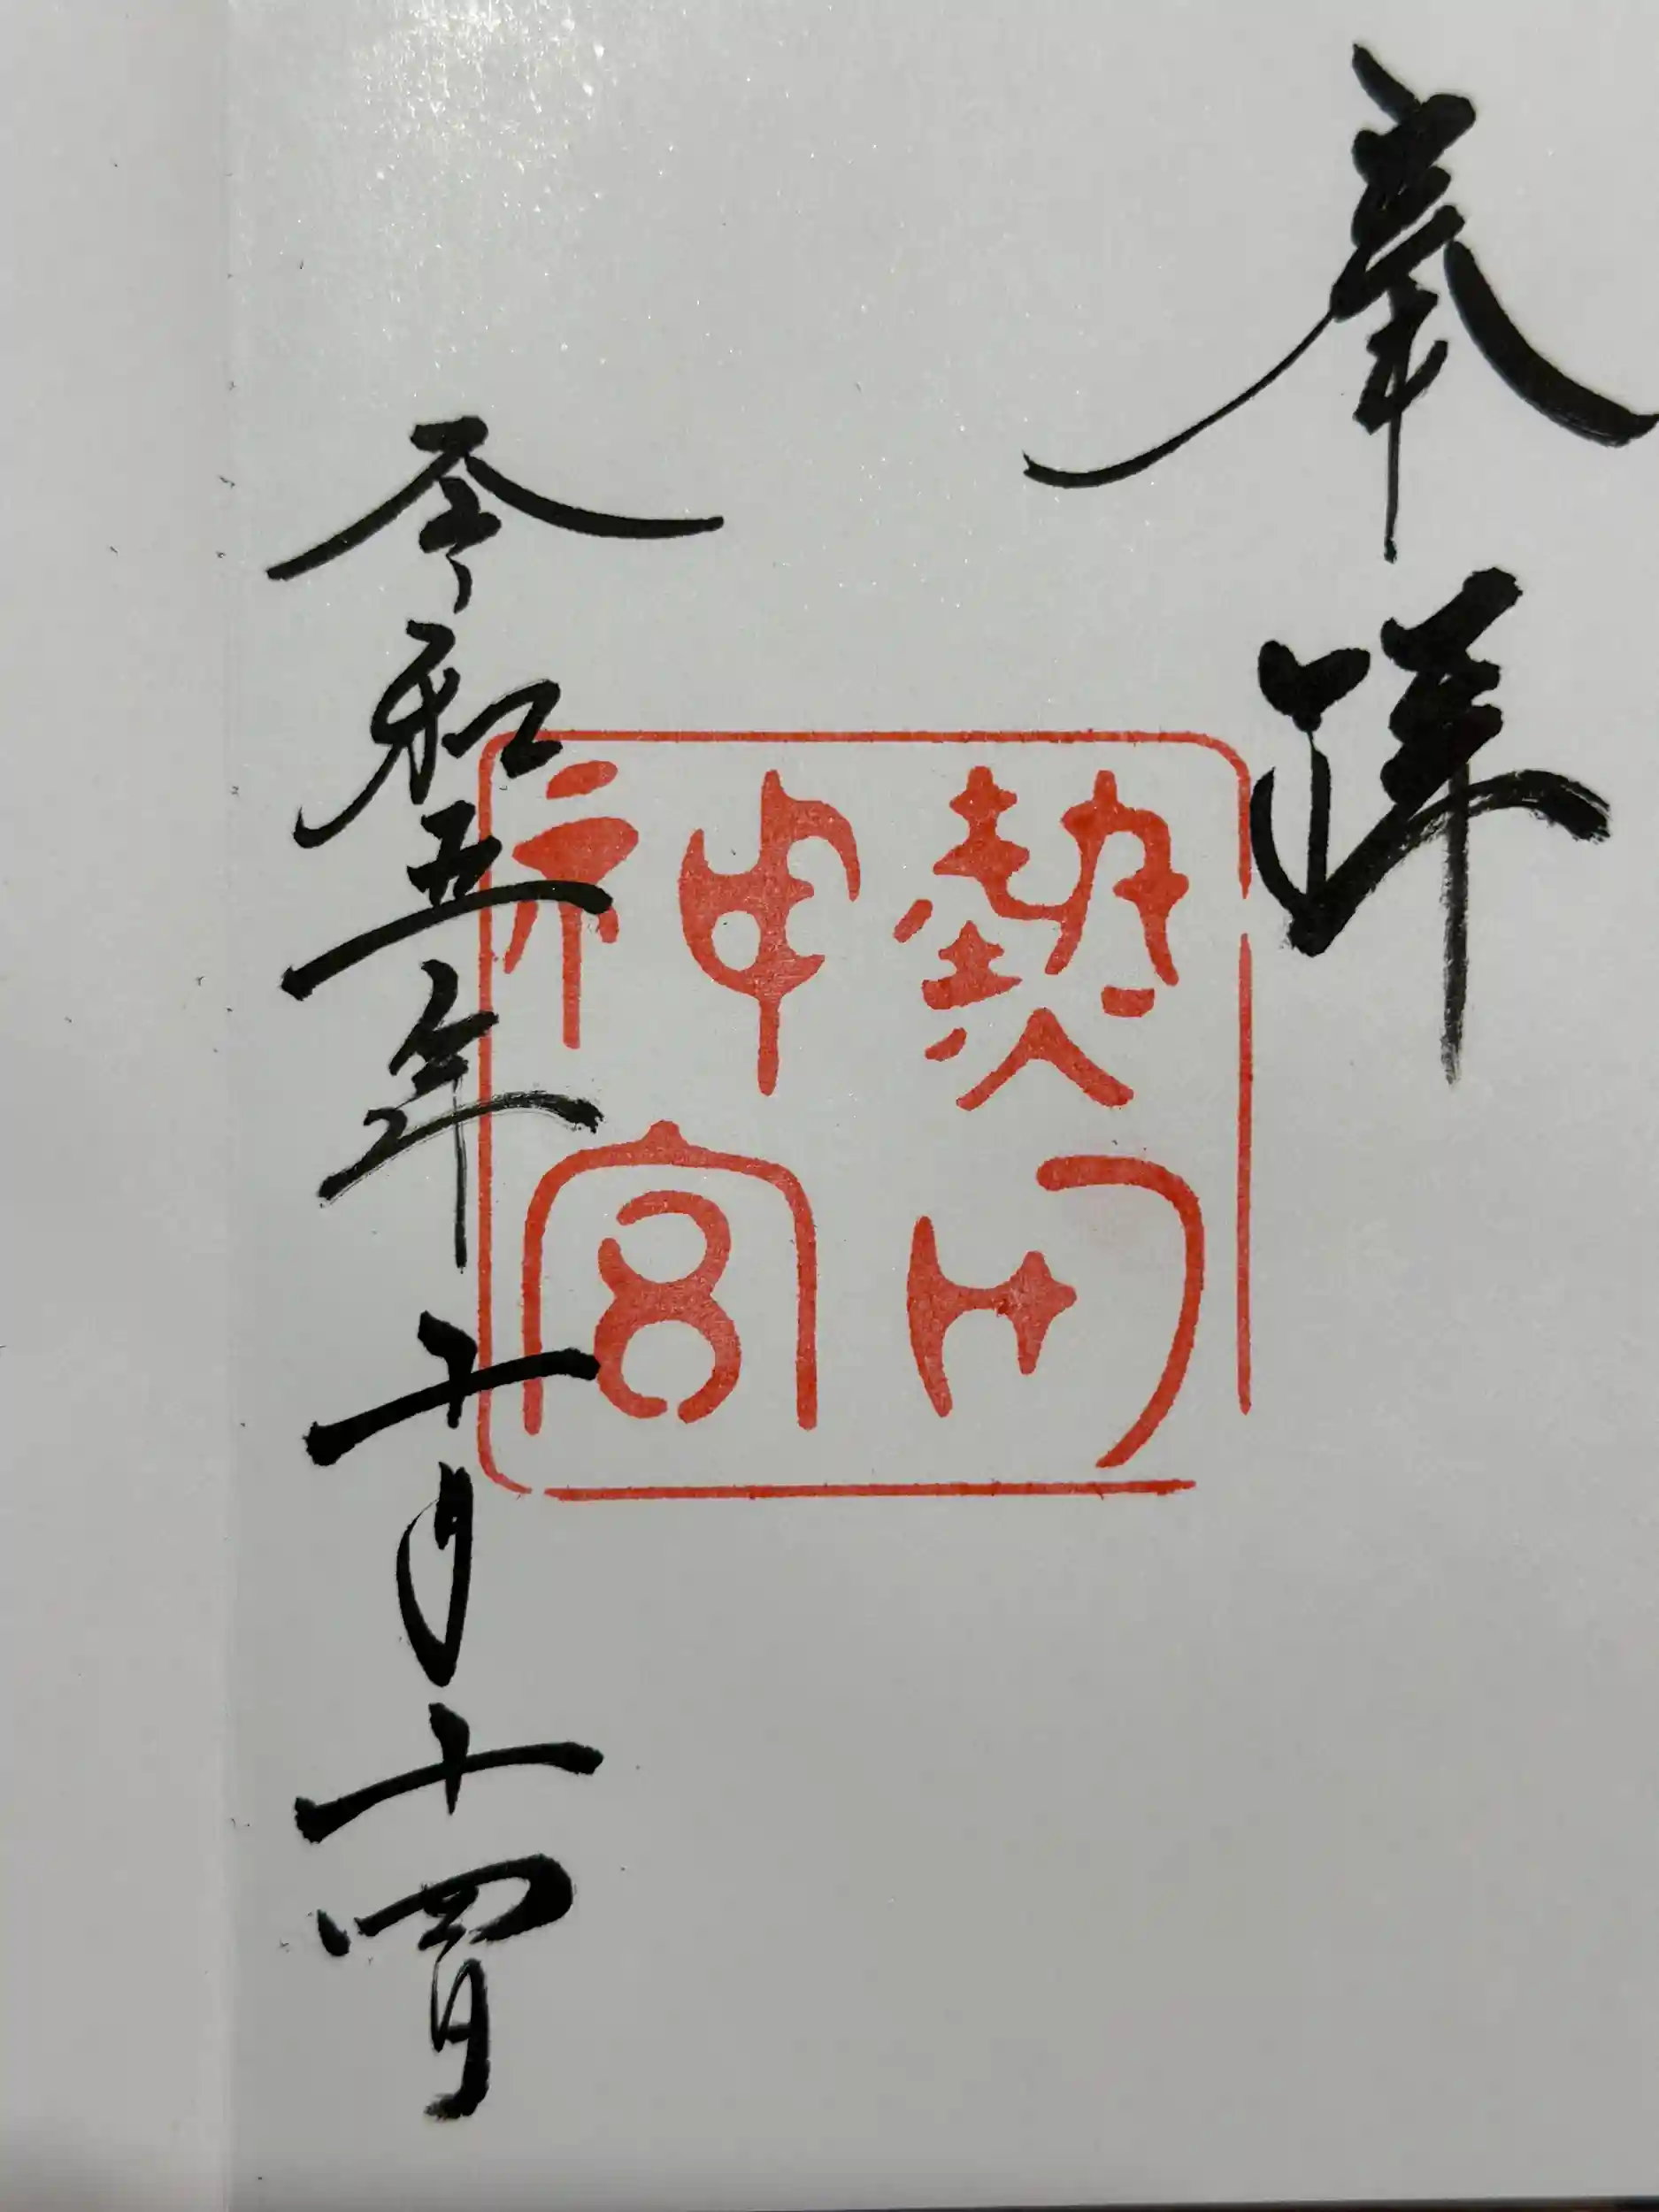 奉拝
熱田
神宮
令和五年十月十四日